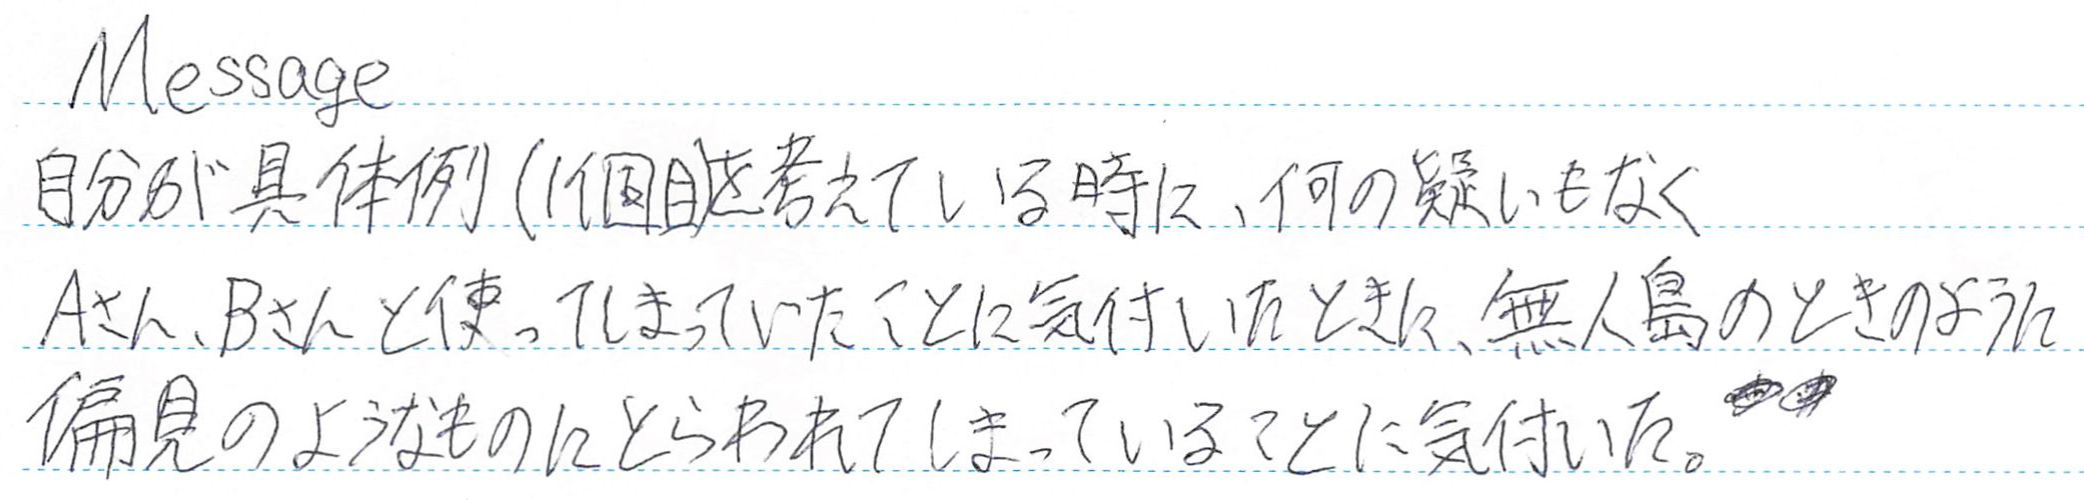 Message
自分が具体例(1個目)を考えている時に、何の疑いもなく
Aさん、Bさんと使ってしまっていたことに気付いたときに、無人島のときのように
偏見のようなものにとらわれてしまっていることに気付いた。